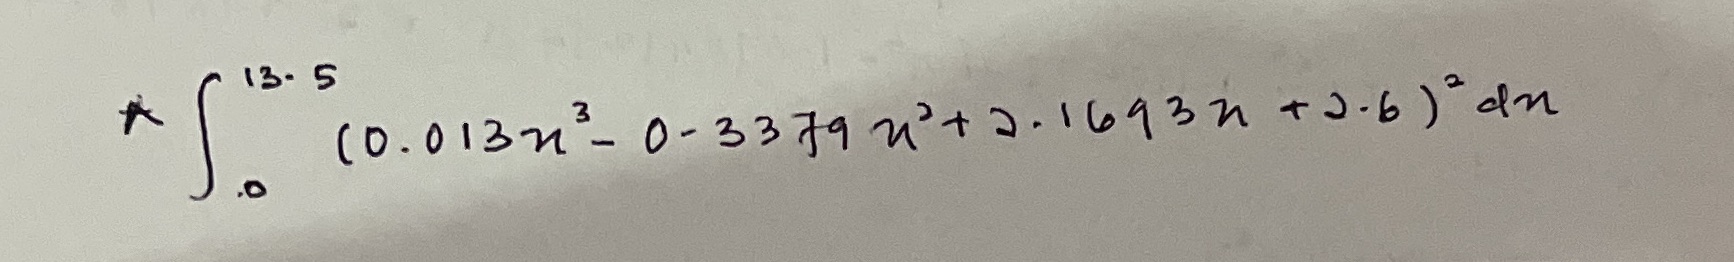 * ∫₀^13.5 (0.013x³ - 0.3379x² + 2.1693x + 2.6)² dx